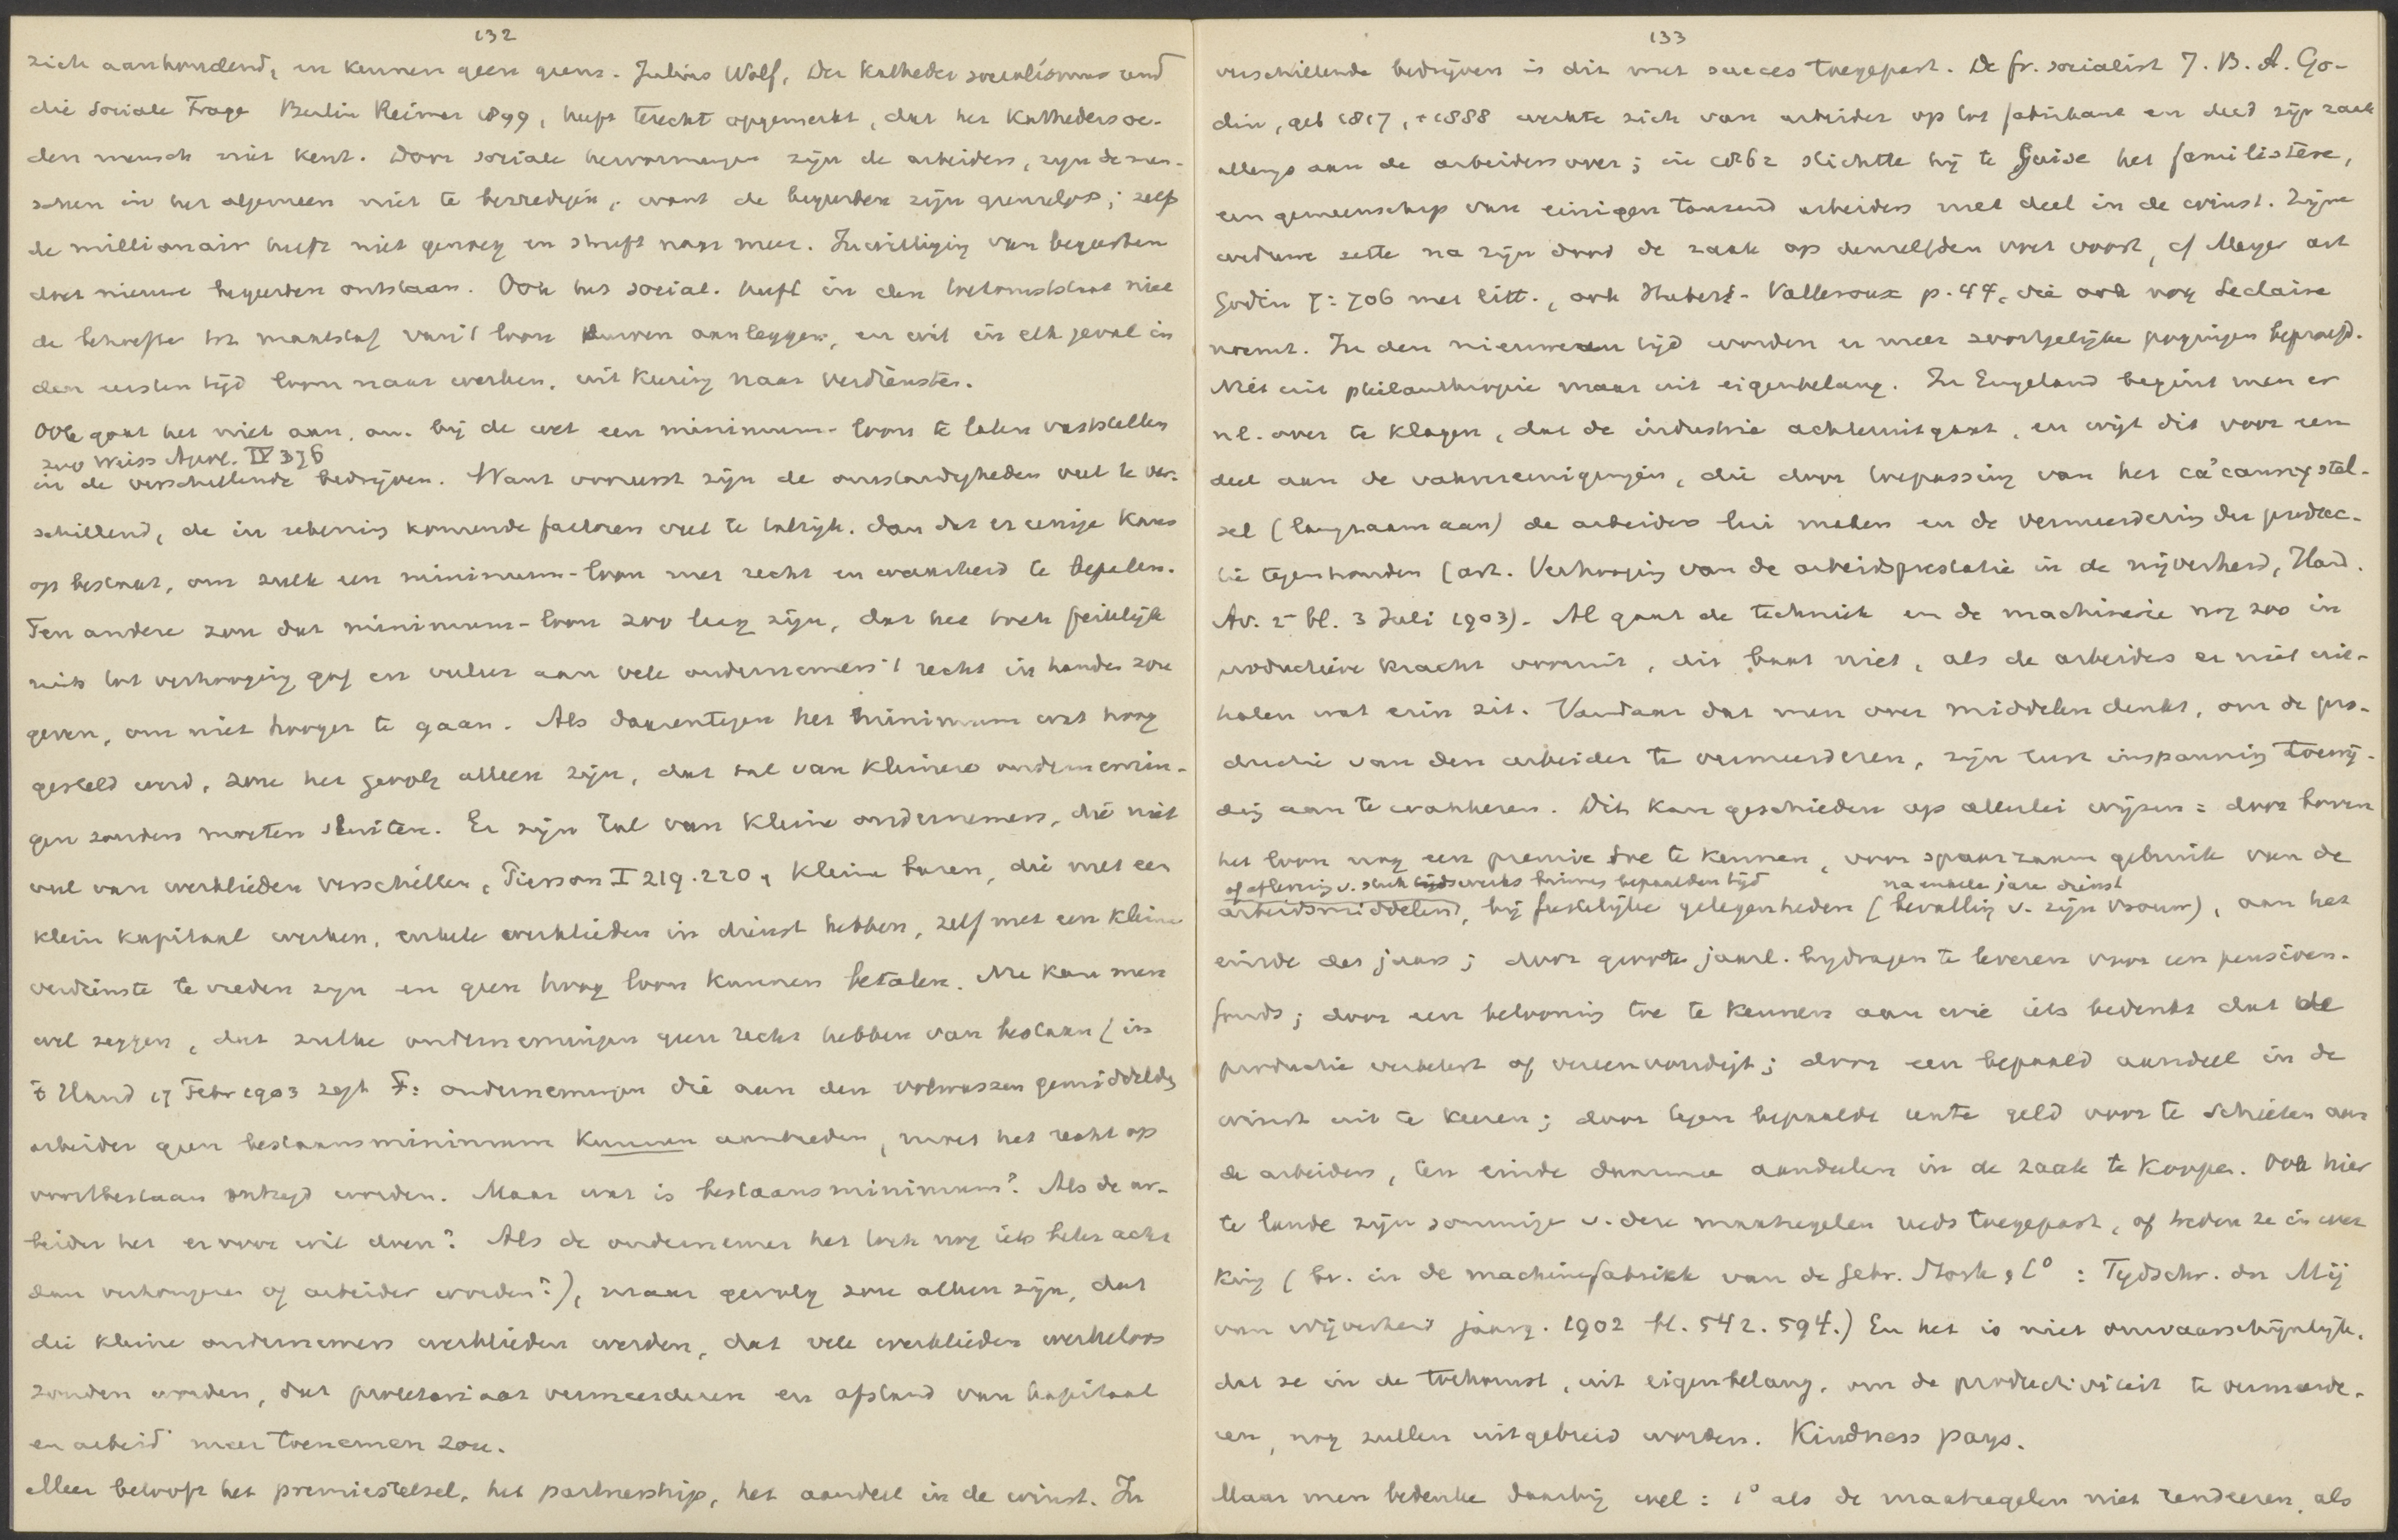 132
zich aanhoudend, en kennen geen grens. Julius Wolf, Der Kathedersocialismus und
die sociale Frage Berlin Reimer 1899, heeft terecht opgemerkt, dat het Kathedersoc.
den mensch niet kent. Door sociale hervormingen zijn de arbeiders, zijn de men-
schen in het algemeen niet te bevredigen, want de begeerten zijn grenzeloos; zelf
de millionair heeft niet genoeg en streeft naar meer. Inwilliging van begeerten
doet nieuwe begeerten ontstaan. Ook het social. heeft in den toekomststaat niet
de behoefte tot maatstaf van 't loon durven aanleggen, en wil in elk geval in
den eersten tijd loon naar werken, uitkeering naar verdiensten.
Ook gaat het niet aan, om bij de wet een minimum-loon te laten vaststellen
zoo Weiss Apol. IV 376
in de verschillende bedrijven. Want vooreerst zijn de omstandigheden veel te ver-
schillend, de in rekening komende factoren veel te talrijk, dan dat er eenige kans
op bestaat, om zulk een minimum-loon met recht en waarheid te bepalen.
Ten andere zou dat minimum-loon zoo laag zijn, dat het toch feitelijk
niets tot verhooging gaf en veeleer aan vele ondernemers 't recht in handen zou
geven, om niet hooger te gaan. Als daarentegen het minimum wat hoog
gesteld werd, zou het gevolg alleen zijn, dat tal van kleinere ondernemin-
gen zouden moeten sluiten. Er zijn tal van kleine ondernemers, die niet
veel van werklieden verschillen, Pierson I 219.220, kleine bazen, die met een
klein kapitaal werken, enkele werklieden in dienst hebben, zelf met een kleine
verdienste tevreden zijn en geen hoog loon kunnen betalen. Nu kan men
wel zeggen, dat zulke ondernemingen geen recht hebben van bestaan (in
Stand 17 Febr 1903 zegt F: ondernemingen die aan den volwassen gemiddelden
arbeider geen bestaansminimum kunnen aanbieden, moet het recht op
voortbestaan ontzegd worden. Maar wat is bestaansminimum? Als de ar-
beider het er voor wil doen? Als de ondernemer het toch nog iets beter acht
dan verhongeren of arbeider worden?), maar gevolg zou alleen zijn, dat
die kleine ondernemers werklieden werden, dat vele werklieden werkeloos
zouden worden, dat proletariaat vermeerderen en afstand van kapitaal
en arbeid meer toenemen zou.
Meer belooft het premiestelsel, het partnership, het aandeel in de winst. In
133
verschillende bedrijven is dit met succes toegepast. De fr. socialist J. B. A. Go-
din, geb 1817, + 1888 werkte zich van arbeider op tot fabrikant en deed zijn zaak
allengs aan de arbeiders over; in 1862 stichtte hij te Guise het familistère,
een gemeenschap van einigen tausend arbeiders met deel in de winst. Zijne
weduwe zette na zijn dood de zaak op denzelfden voet voort, cf Meyer art
Godin 7:706 met litt., ook Hubert-Valleroux p.44, die ook nog Leclaire
noemt. In den nieuweren tijd worden er meer soortgelijke pogingen beproefd.
Niet uit philanthropie maar uit eigenbelang. In Engeland begint men er
nl. over te klagen, dat de industrie achteruitgaat, en wijt dit voor een
deel aan de vakvereenigingen, die door toepassing van het ca'canny stel-
sel (langzaam aan) de arbeiders lui maken en de vermeerdering der produc-
tie tegenhouden (art. Verhooging van de arbeidsprestatie in de nijverheid, Hand.
Av. 2e bl. 3 Juli 1903). Al gaat de techniek en de machinerie nog zoo in
productieve kracht vooruit, dit baat niet, als de arbeiders er niet uit-
halen wat erin zit. Vandaar dat men over middelen denkt, om de pro-
ductie van den arbeider te vermeerderen, zijn lust inspanning toewij-
ding aan te wakkeren. Dit kan geschieden op allerlei wijzen: door boven
het loon nog een premie toe te kennen, voor spaarzaam gebruik van de
of aflevering v. stuk werks binnen bepaalden tijd na enkele jare dienst
arbeidsmiddelen, bij feestelijke gelegenheden (bevalling v. zijn vrouw), aan het
einde des jaars; door groote jaarl. bijdragen te leveren voor een pensioen-
fonds; door een belooning toe te kennen aan wie iets bedenkt dat de
productie verbetert of vereenvoudigt; door een bepaald aandeel in de
winst uit te keeren; door tegen bepaalde rente geld voor te schieten aan
de arbeiders, ten einde daarmee aandeelen in de zaak te koopen. Ook hier
te lande zijn sommige v. deze maatregelen reeds toegepast, of treden ze in wer
king (bv. in de machinefabriek van de Gebr. Stork & Co: Tijdschr. der Mij
van Nijverheid jaarg. 1902 bl. 542. 594.) En het is niet onwaarschijnlijk,
dat ze in de toekomst, uit eigenbelang, om de productiviteit te vermeerde-
ren, nog zullen uitgebreid worden. Kindness pays.
Maar men bedenke daarbij wel: 1° als de maatregelen niet rendeeren, als